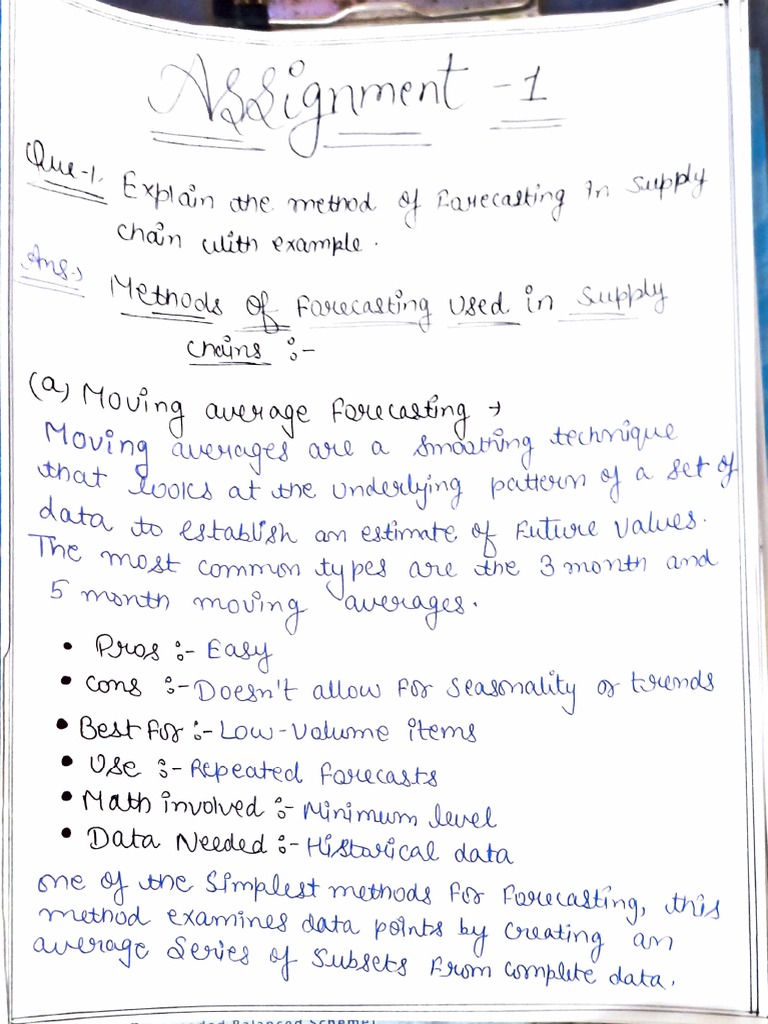 Assignment - 1
Que-1. Explain the method of Forecasting in supply
chain with example.
Ans.→
Methods of Forecasting used in supply
chains :-
(a) Moving average forecasting →
Moving averages are a smoothing technique
that looks at the underlying pattern of a set of
data to establish an estimate of future values.
The most common types are the 3 month and
5 month moving averages.
• Pros :- Easy
• Cons :- Doesn't allow for seasonality or trends
• Best for :- Low-Volume items
• Use :- Repeated forecasts
• Math involved :- Minimum level
• Data Needed :- Historical data
one of the simplest methods for forecasting, this
method examines data points by creating an
average series of subsets from complete data.